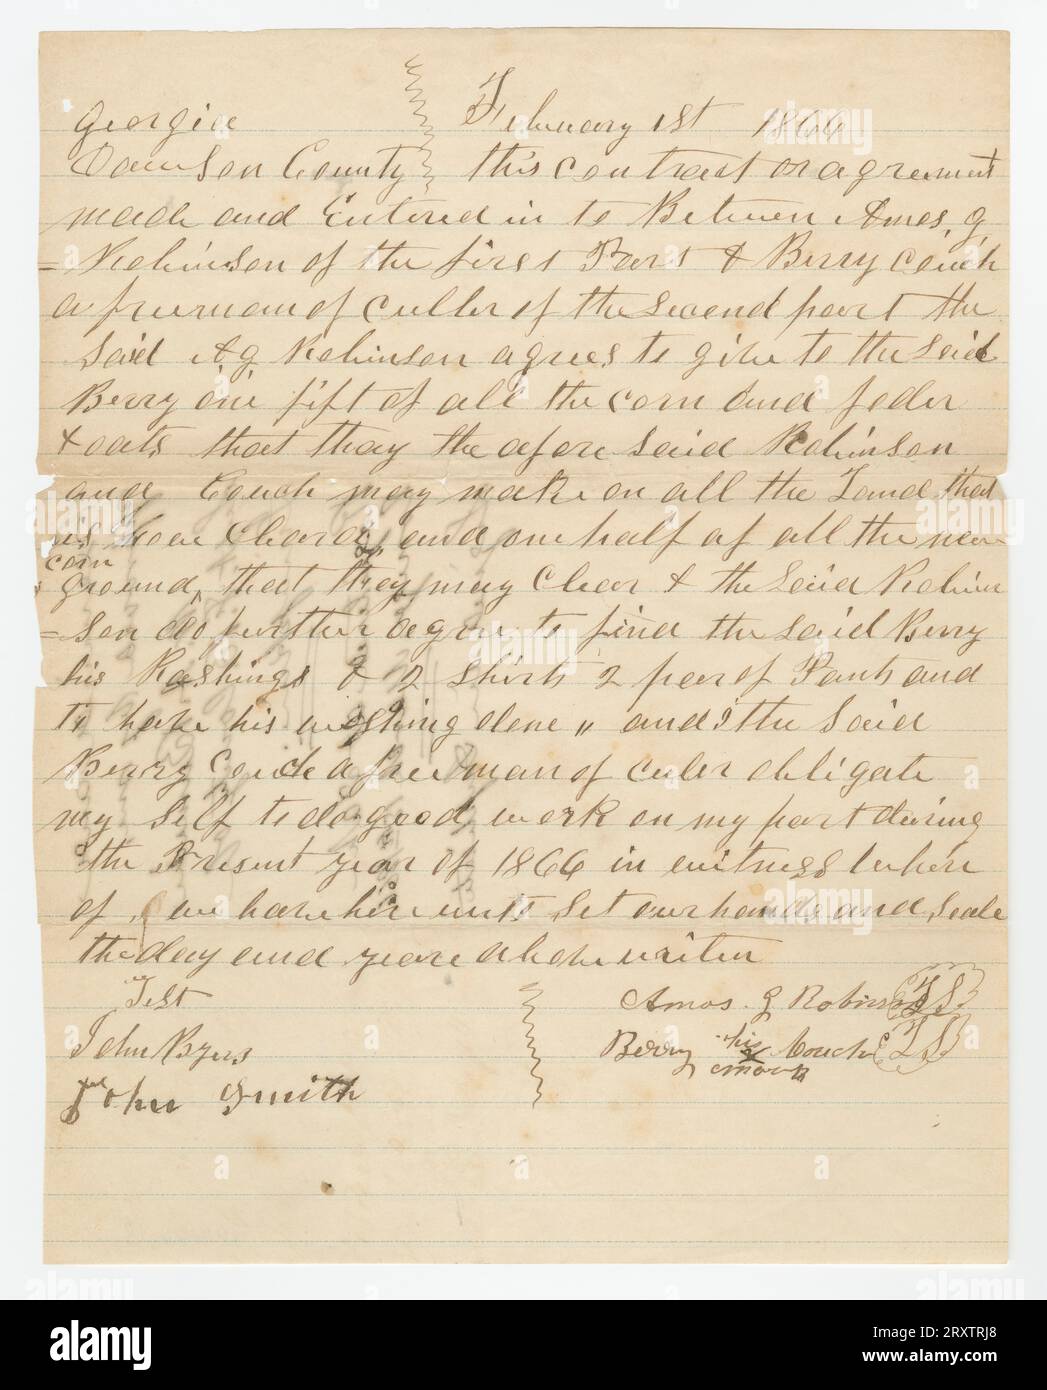 Georgia February 1st 1866
Dawson County this contract or agreement
made and Entered in to Between Amos. G
= Robinson of the first Part & Berry Couch
a freeman of culler of the second part the
Said A. G. Robinson agrees to give to the Said
Berry one fift of all the corn and foder
& oats that thay the afore Said Robinson
and Couch may make on all the Land that
is now Cleard and one half of all the new
corn
ground, that they may Clear & the Said Robin
= son do further agree to find the said Berry
his Rashings & 2 Shirts 2 pear of Pants and
to have his washing done „ and I the Said
Berry Couch a freeman of culer obligate
my Self to do good work on my part during
the Present year of 1866 in witness whare
of we have here unto Set our hands and Seale
the day and yeare above writen
Test Amos. G Robinson LS
John Byers Berry his X mark Couch LS
John Smith
alamy
Image ID: 2RXTRJ8
www.alamy.com